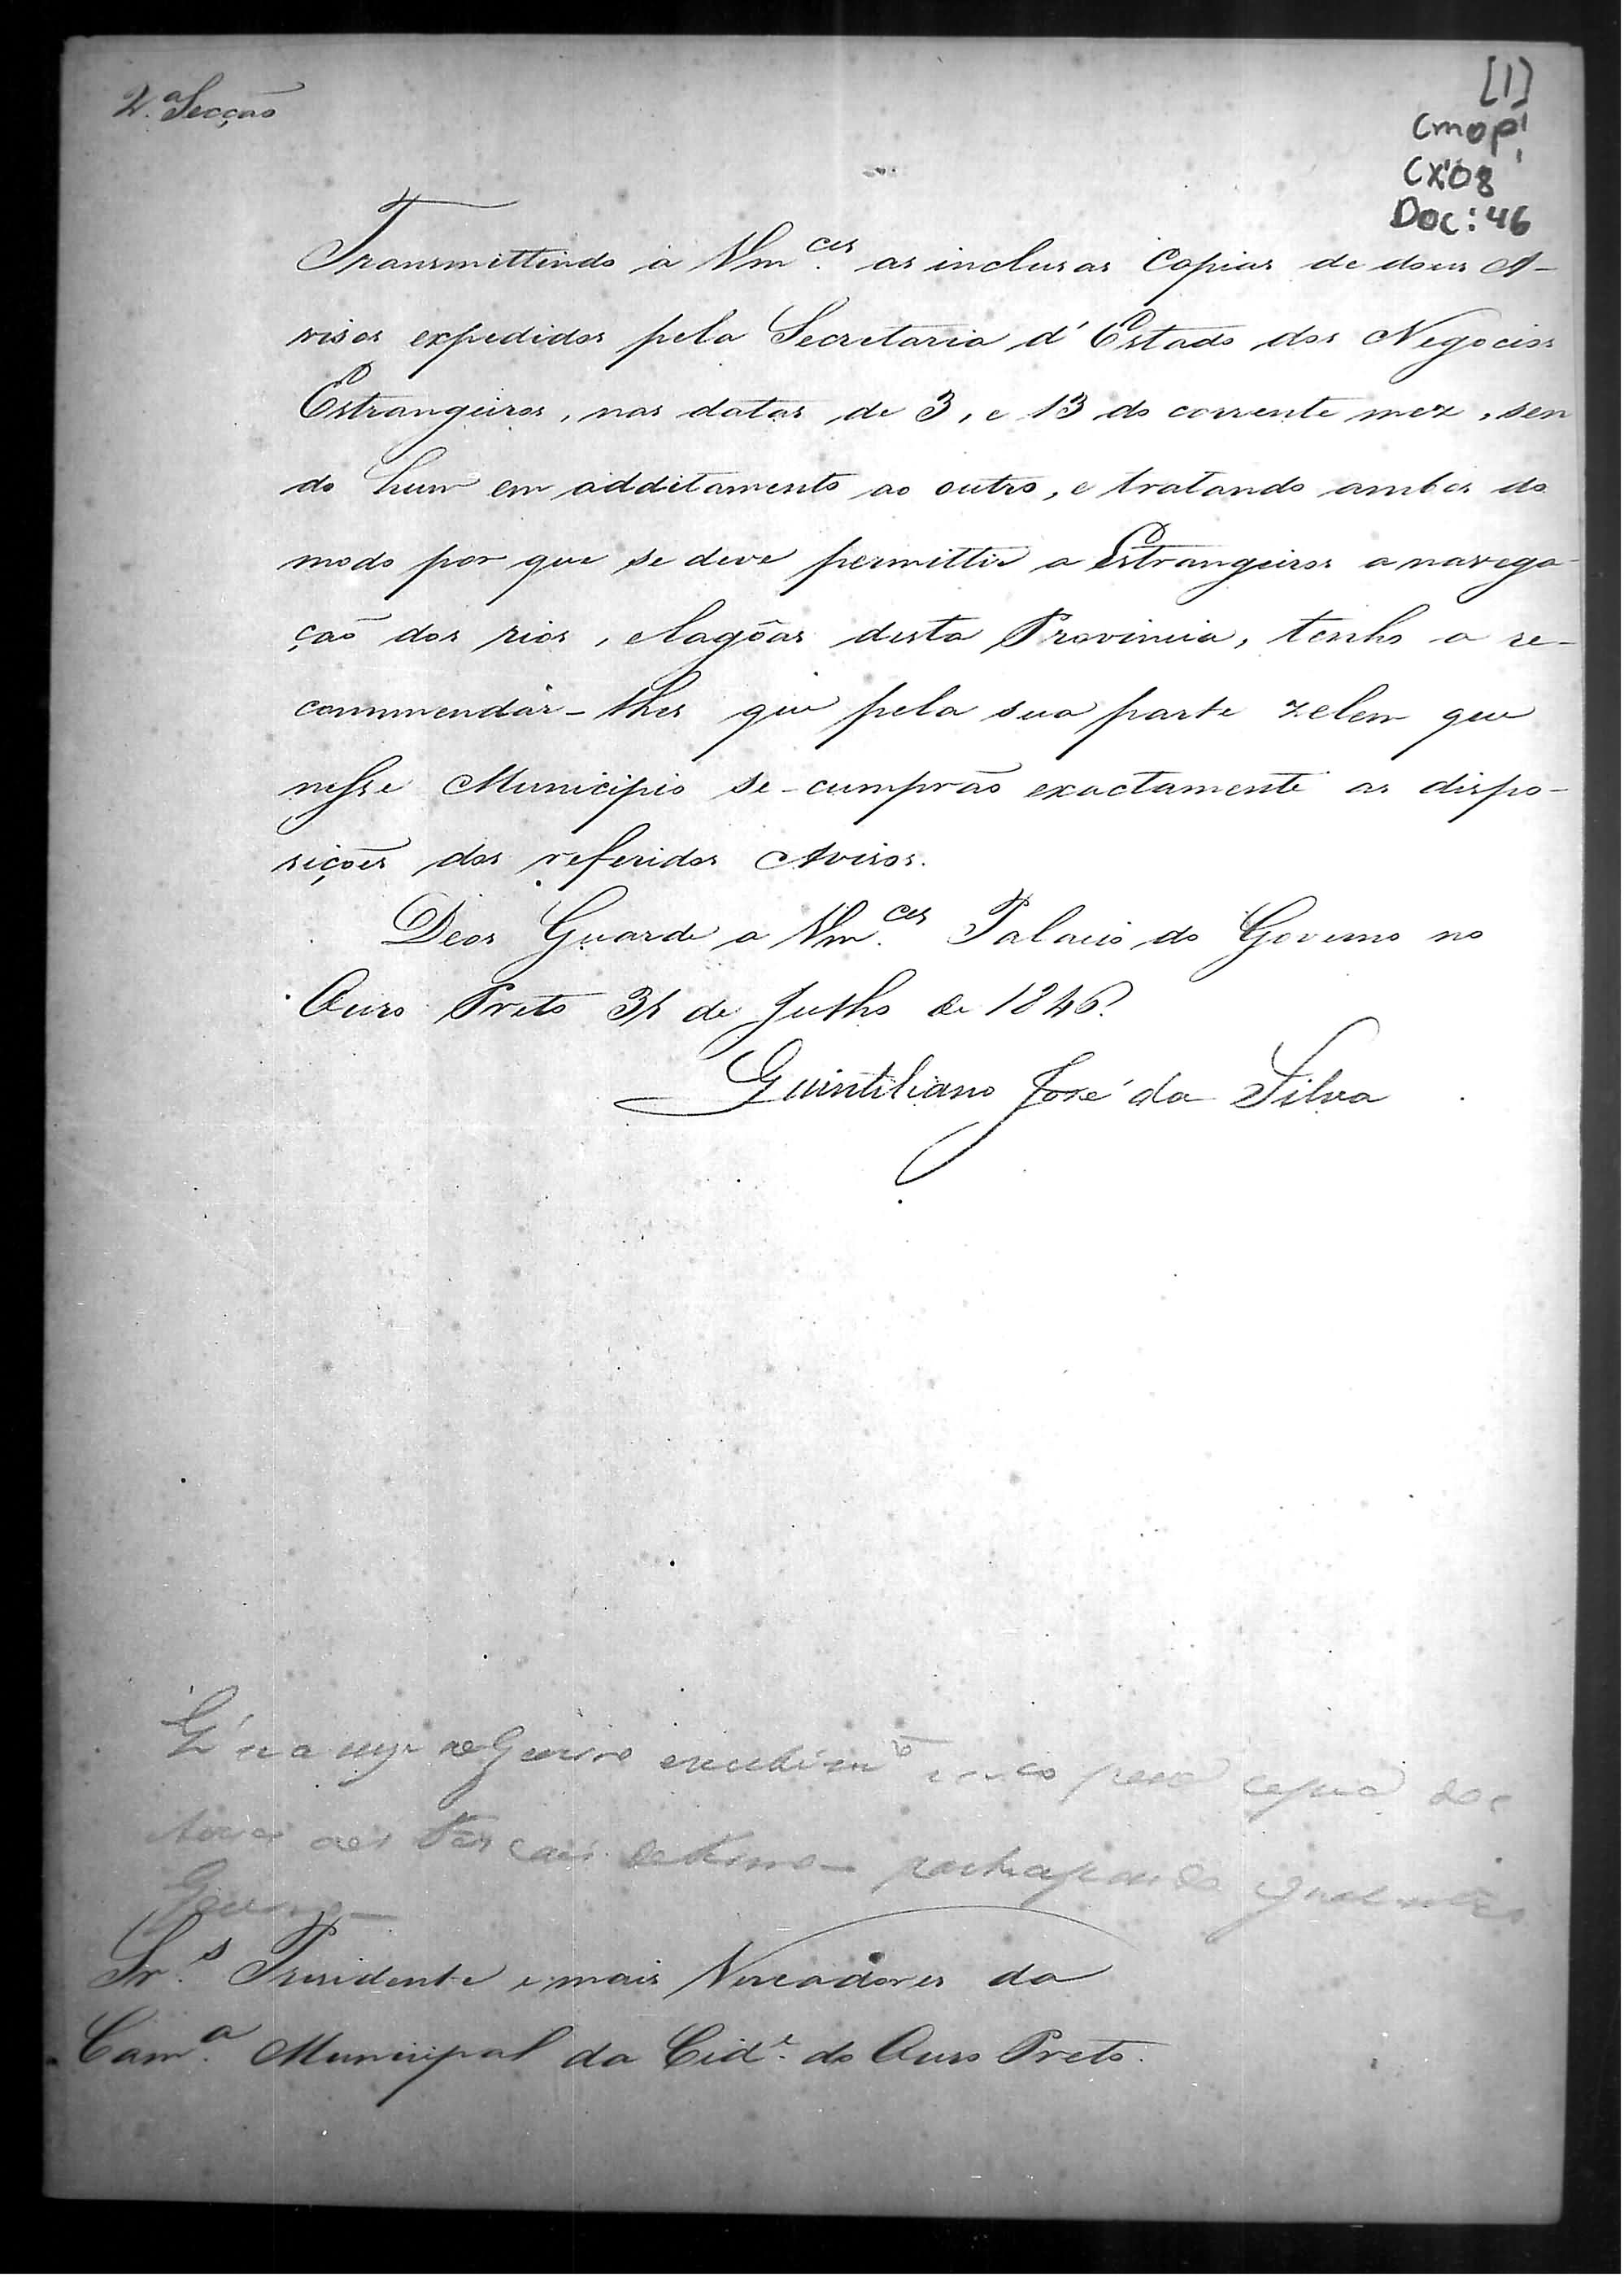 2.ª Secção
[1]
CMOP
CX: 08
Doc: 46
Transmittindo a Vm.ces as inclusas Copias de dous A-
visos expedidos pela Secretaria d'Estado dos Negocios
Estrangeiros, nas datas de 3, e 13 do corrente mez, sen
do hum em additamento ao outro, e tratando ambos do
modo por que se deve permittir a Estrangeiros a navega-
ção dos rios, e lagôas desta Provincia, tenho a re-
commendar-lhes que pela sua parte zelem que
nesse Municipio se-cumprão exactamente as dispo-
sições dos referidos Avisos.
Deos Guarde a Vm.ces Palacio do Governo no
Ouro Preto 31 de Julho de 1846.
Quintiliano José da Silva
copia dos
aos Fiscais
Governo
Sr.s Presidente e mais Vereadores da
Cam.a Municipal da Cid.e do Ouro Preto.